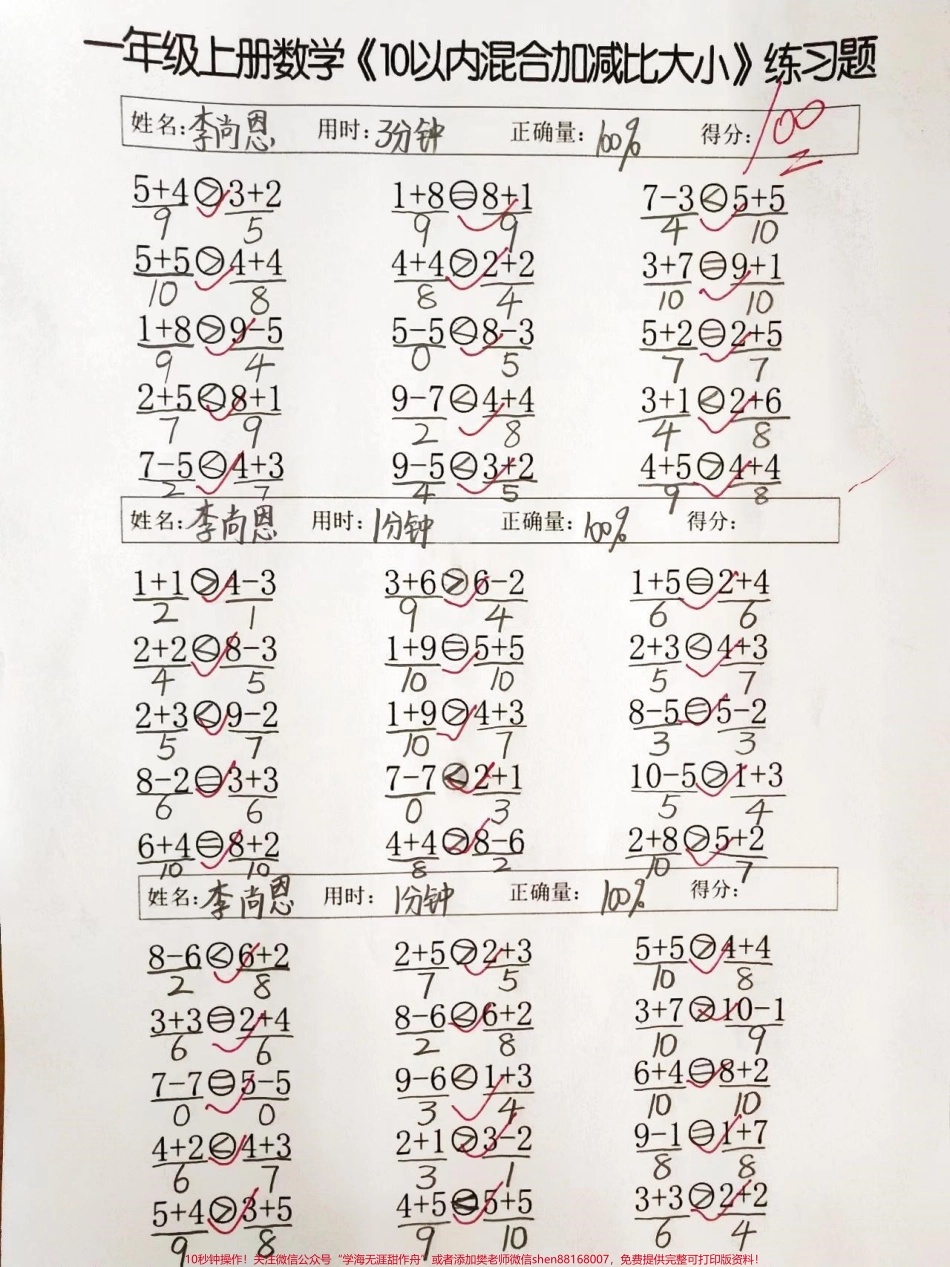 一年级上册数学《10以内混合加减比大小》练习题
姓名:李尚恩 用时:3分钟 正确量:100% 得分:100
5+4>3+2 1+8=8+1 7-3<5+5
9 5 9 9 4 10
5+5>4+4 4+4>2+2 3+7=9+1
10 8 8 4 10 10
1+8>9-5 5-5<8-3 5+2=2+5
9 4 0 5 7 7
2+5<8+1 9-7<4+4 3+1<2+6
7 9 2 8 4 8
7-5<4+3 9-5<3+2 4+5>4+4
2 7 4 5 9 8
姓名:李尚恩 用时:1分钟 正确量:100% 得分:
1+1>4-3 3+6>6-2 1+5=2+4
2 1 9 4 6 6
2+2<8-3 1+9=5+5 2+3<4+3
4 5 10 10 5 7
2+3<9-2 1+9>4+3 8-5=5-2
5 7 10 7 3 3
8-2=3+3 7-7<2+1 10-5>1+3
6 6 0 3 5 4
6+4=8+2 4+4>8-6 2+8>5+2
10 10 8 2 10 7
姓名:李尚恩 用时:1分钟 正确量:100% 得分:
8-6<6+2 2+5>2+3 5+5>4+4
2 8 7 5 10 8
3+3=2+4 8-6<6+2 3+7>10-1
6 6 2 8 10 9
7-7=5-5 9-6<1+3 6+4=8+2
0 0 3 4 10 10
4+2<4+3 2+1>3-2 9-1=1+7
6 7 3 1 8 8
5+4>3+5 4+5<5+5 3+3>2+2
9 8 9 10 6 4
10秒钟操作！关注微信公众号“学海无涯甜作舟”或者添加樊老师微信shen88168007，免费提供完整可打印版资料！